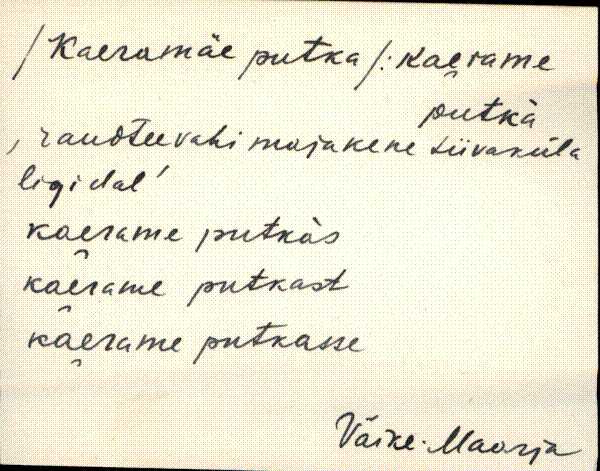 /Kaeramäe putka/: kae̯rame
putkà
, raudteevahi majakene Liivaküla
ligidal'
kae̯rame putkàs
kae̯rame putkast
kae̯rame putkasse
Väike-Maarja